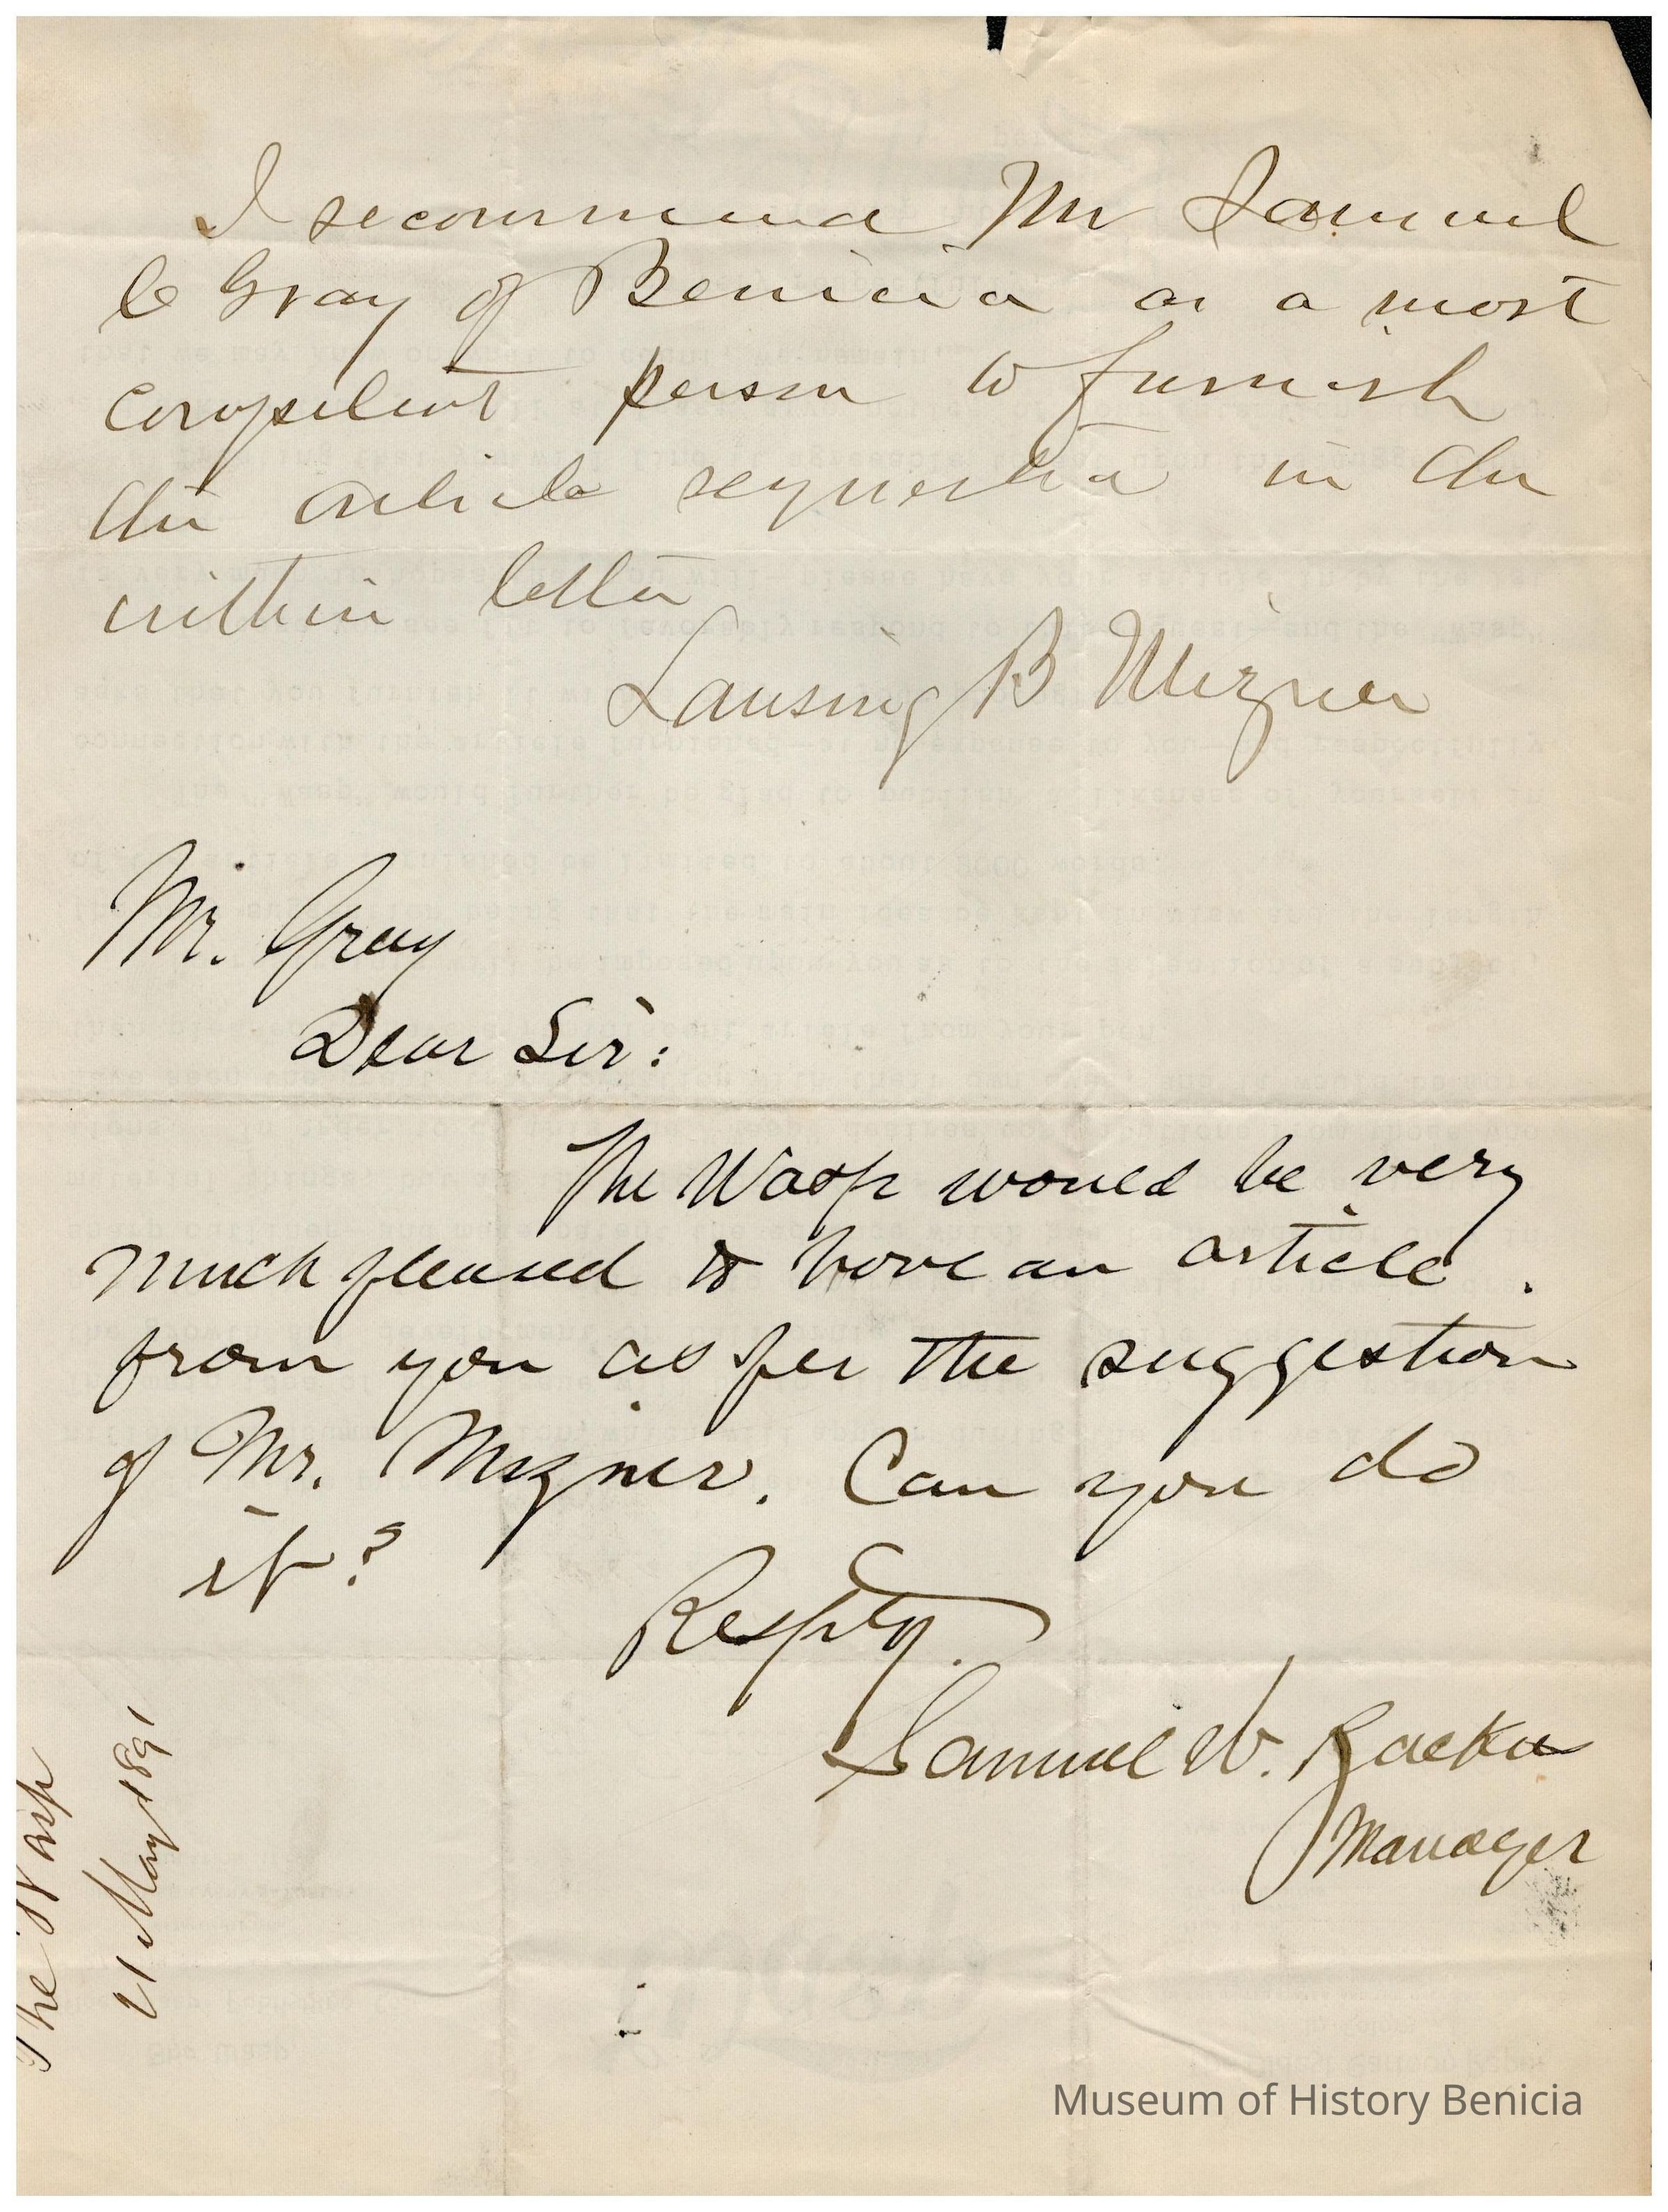 I recommend Mr Samuel
C Gray of Benicia as a most
competent person to furnish
the article requested in the
within letter
Lansing B Mizner
Mr. Gray
Dear Sir:
The Wasp would be very
much pleased to have an article
from you as per the suggestion
of Mr. Mizner. Can you do
it?
Respty.
Samuel W.
Manager
The Wasp
21 May 1891
Museum of History Benicia